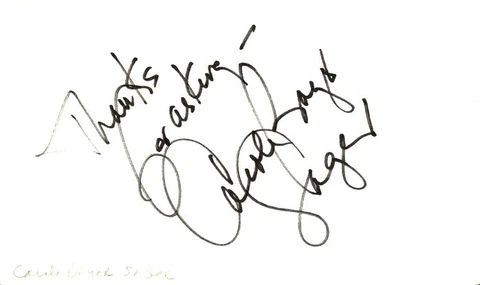 Thanks
for asking!
Carole Bayer
Sager
Carole Bayer Sager